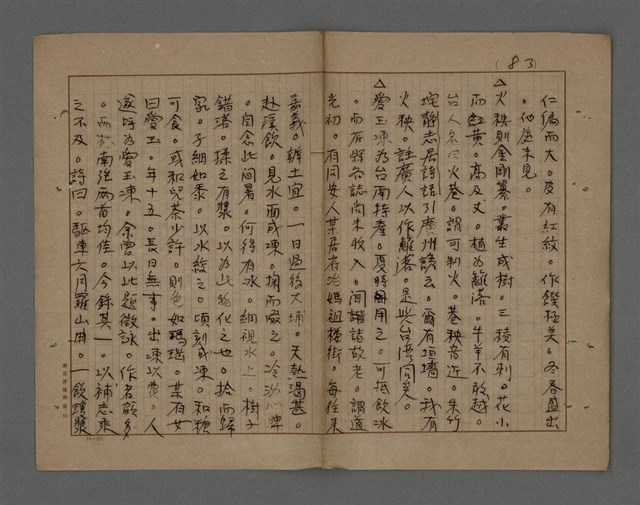 (83)
仁偏而大。皮有紅紋。作饌極美。冬春盛出
。他處未見。
△火秧則金剛纂。叢生成樹。三稜有刺。花小
而色黃。高及丈。植為籬落。牛羊不敢越。
台人名曰火巷。謂可制火。巷秧音近。朱竹
垞靜志居詩話引廣州諺云。爾有垣墻。我有
火秧。註廣人以作籬落。是此台灣同矣。
△愛玉凍為台南特產。夏時用之。可抵飲冰
。而所轄各誌尚未收入。聞諸故老。謂道
光初。有同安人某居者冶媽祖樓街。每往來
嘉義。辦土宜。一日過後大埔。天熱渴甚。
赴溪飲。見水面成凍。掬而啜之。冷沁心脾
。自念此間暑。何得有冰。細視水上。樹子
錯落。揉之有漿。以為此物化之也。拾而歸
家。子細如黍。以水絞之。頃刻成凍。和糖
可食。或和兒茶少許。則色如瑪瑙。某有女
曰愛玉。年十五。長日無事。出凍以賣。人
遂呼為愛玉凍。余曾以此題徵詠。作者頗多
。而於南強兩首均佳。今錄其一。以補志乘
之不及。詩曰。驅車六月羅山曲。一飲瓊漿